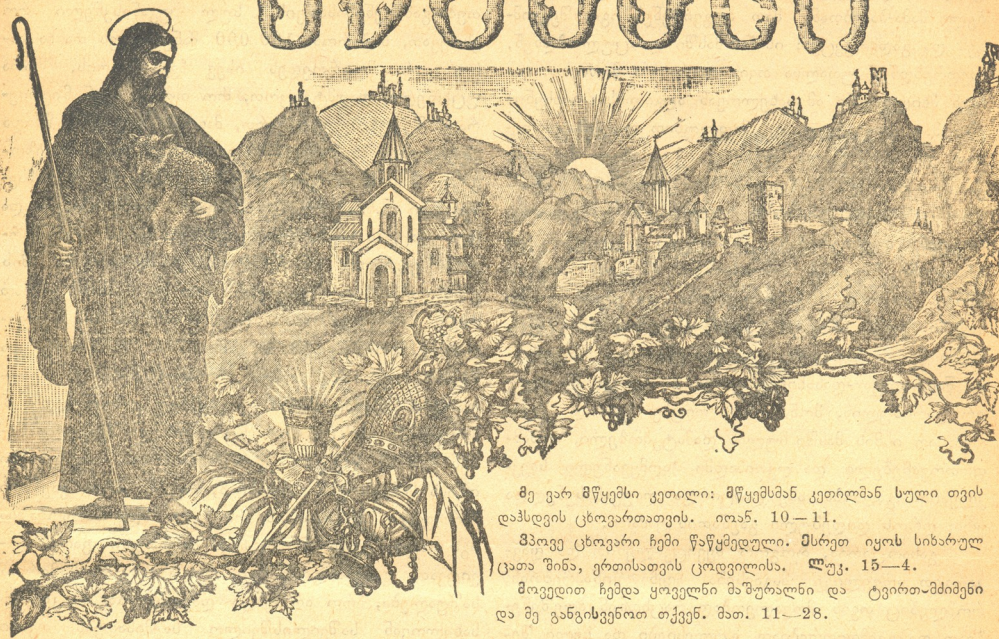 მწყემსი
მე ვარ მწყემსი კეთილი: მწყემსმან კეთილმან სული თვის
დაჰსდვის ცხოვართათვის. იოან. 10—11.
მპოვე ცხოვარი ჩემი წაწყმედული. ესრეთ იყოს სიხარულ
ცათა შინა, ერთისათვის ცოდვილისა. ლუკ. 15—4.
მოვედით ჩემდა ყოველნი მაშურალნი და ტვირთ-მძიმენი
და მე განგისვენოთ თქვენ. მათ. 11—28.